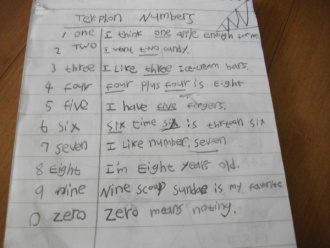 Telephon Numbers
1 one I think one apple enough
2 Two I very two candy.
3 three I Like three icecream bars.
4 four four plus four is Eight
5 five I have five fingers.
6 six six time six is thirteen six
7 seven I like number, seven
8 Eight I'm Eight years old.
9 nine Nine scoop sundae is my favorite
0 zero Zero means noting.